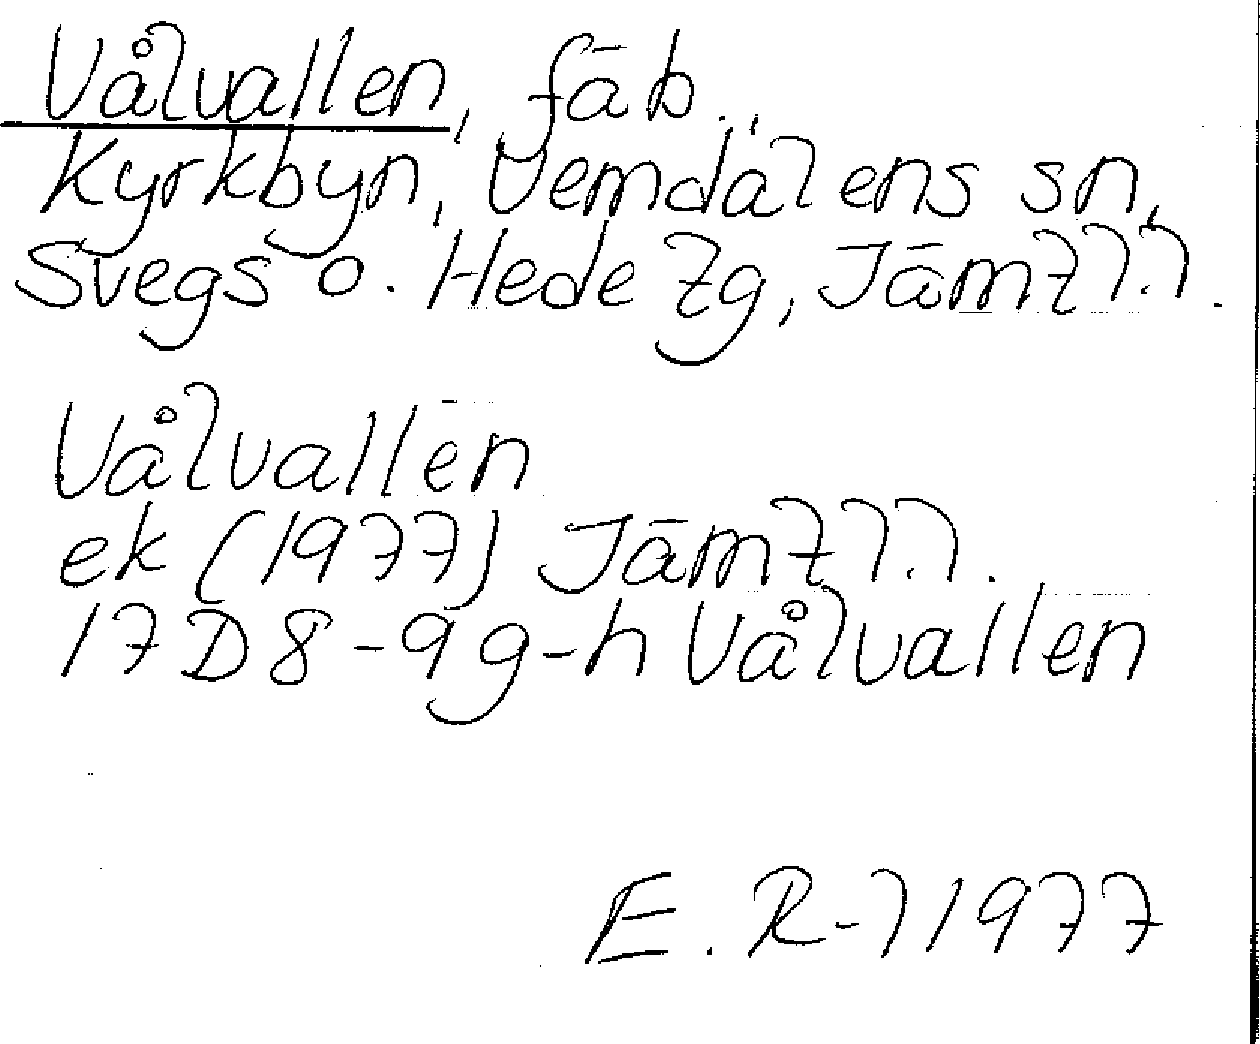 Vålvallen, fäb.,
Kyrkbyn, Vemdalens sn,
Svegs o. Hede tg, Jämtl.l.
Vålvallen
ek (1977) Jämtl.l.
17D8-9g-h Vålvallen
E. R-l 1977